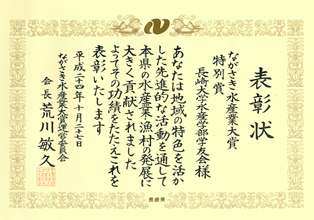 表彰状
ながさき水産業大賞
特別賞
長崎大学水産学部学友会様
あなたは地域の特色を活か
した先進的な活動を通して
本県の水産業・漁村の発展に
大きく貢献されました
よってその功績をたたえこれを
表彰いたします
平成二十四年十月二十七日
ながさき水産業大賞運営委員会
会長 荒川敏久